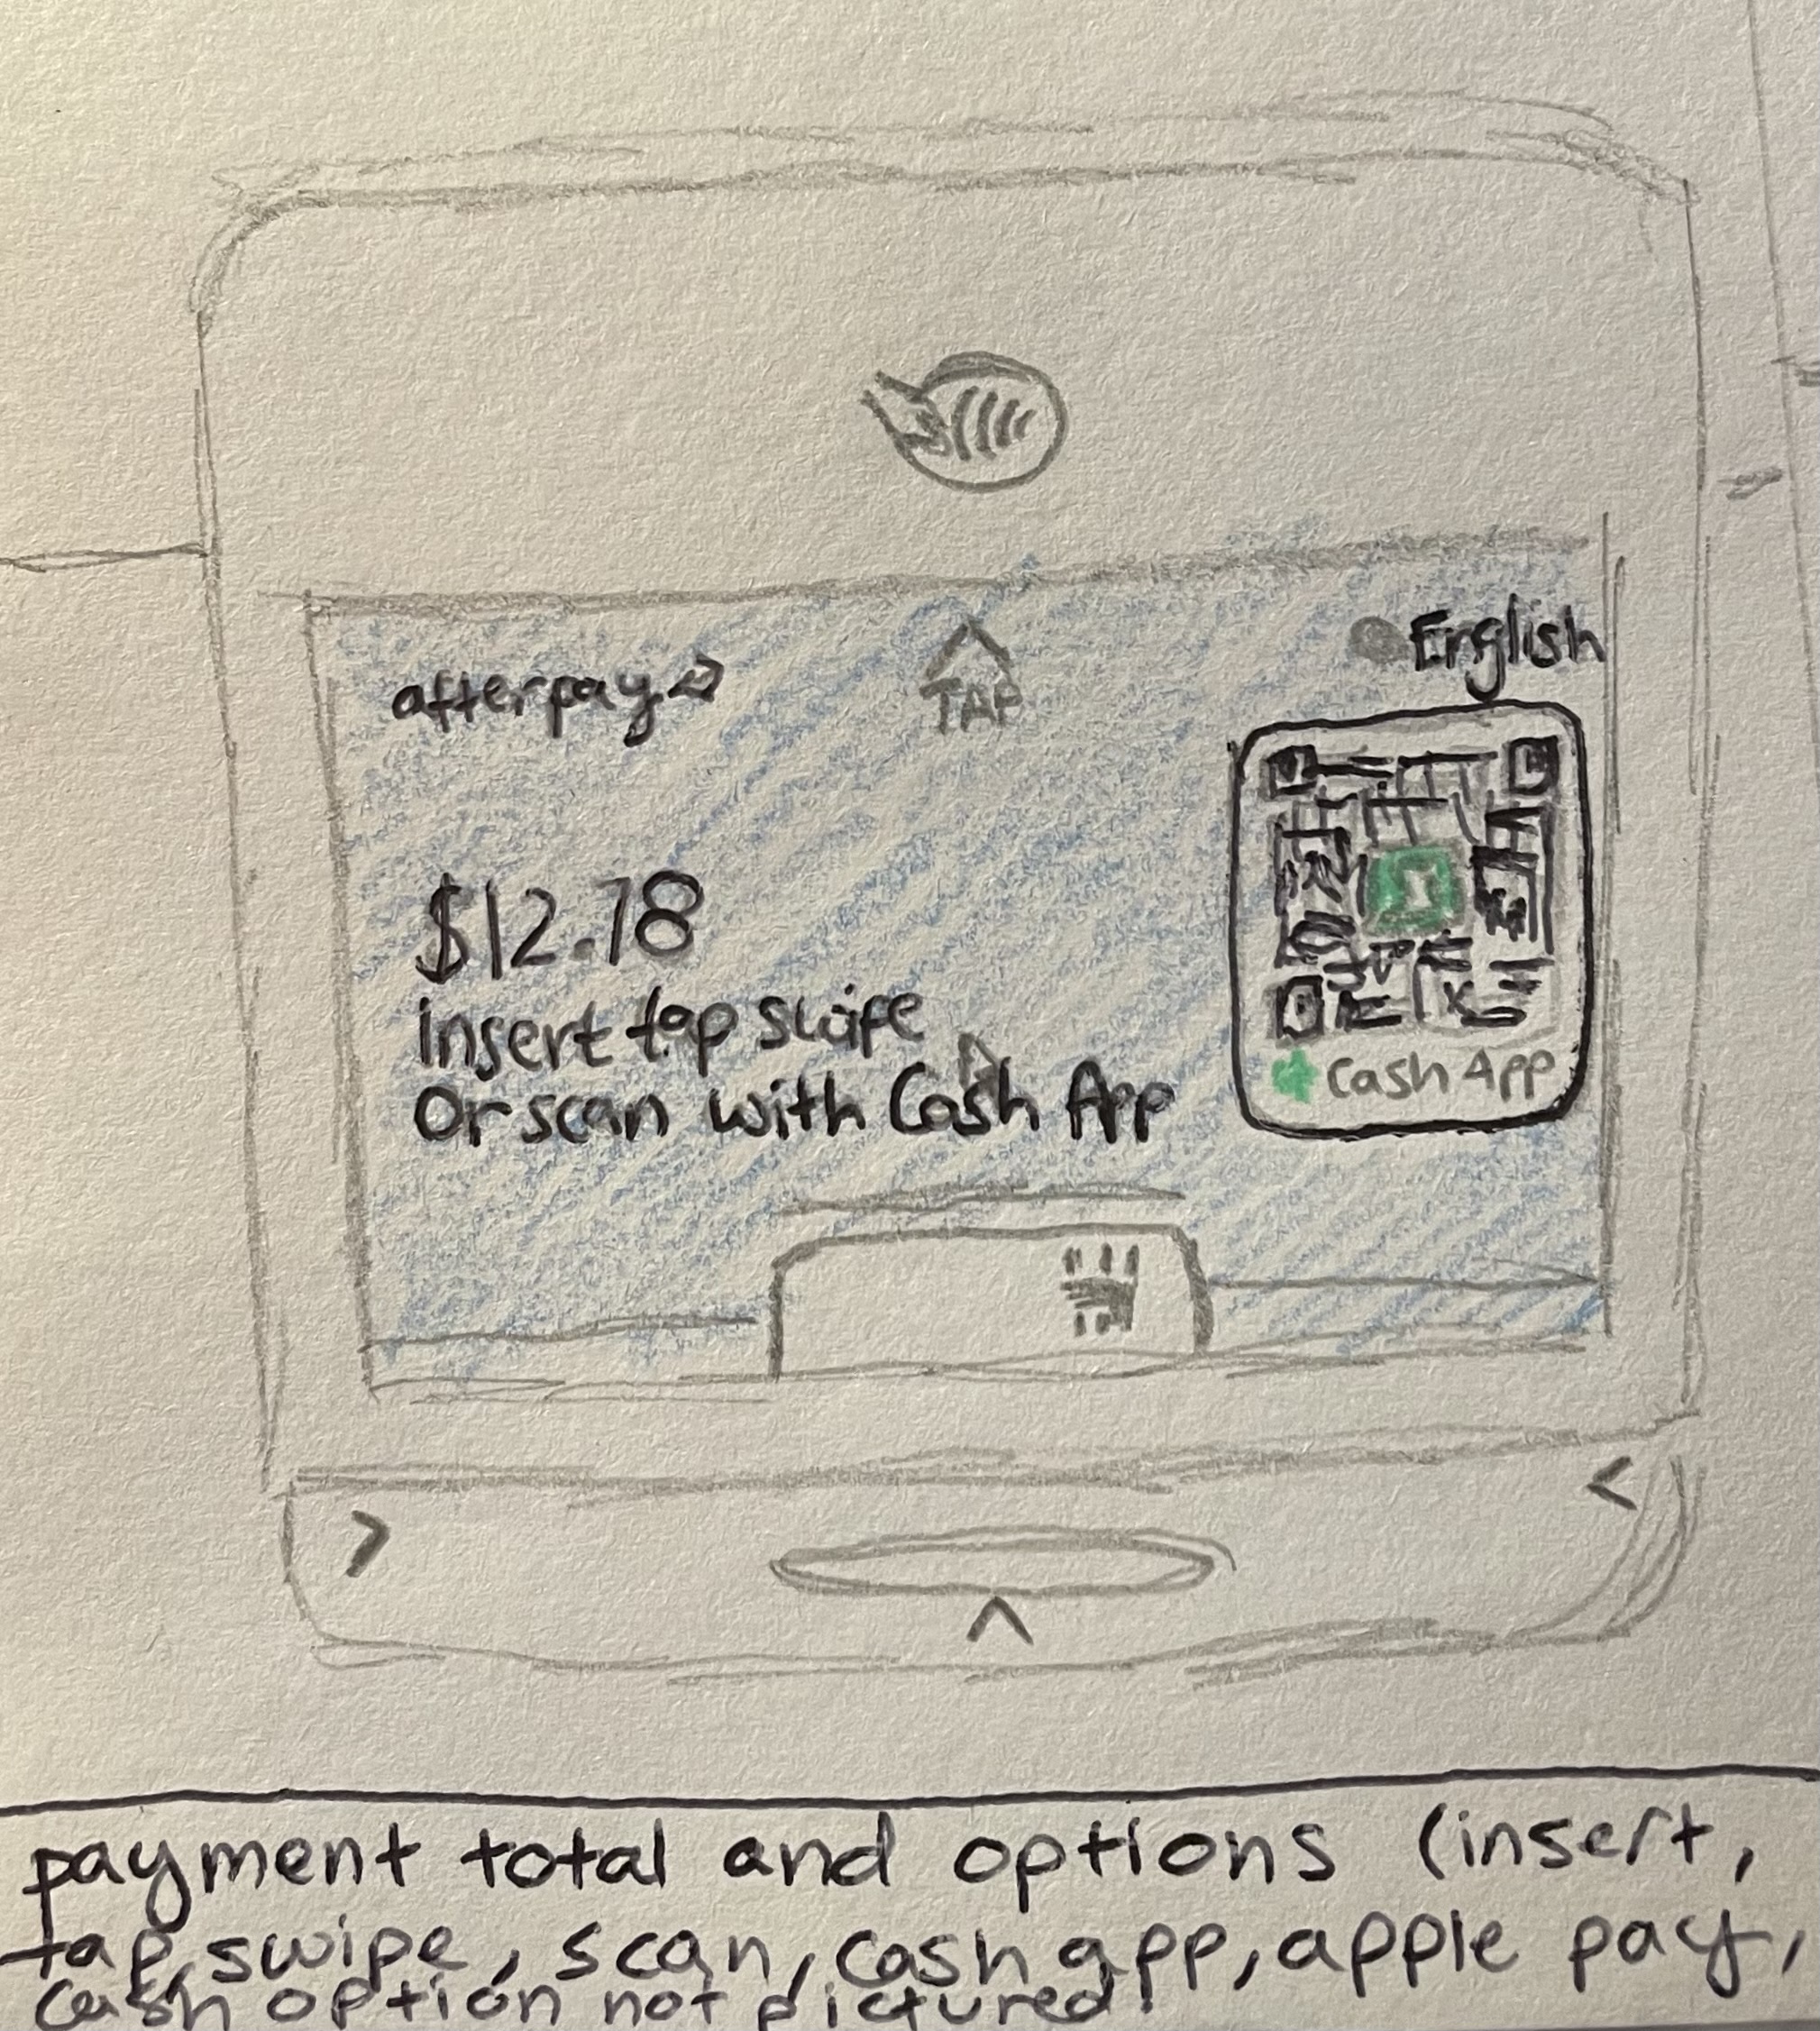 afterpay
TAP
English
$12.78
insert tap swipe
Or scan with Cash App
Cash App
payment total and options (insert,
tap, swipe, scan, cash app, apple pay,
cash option not pictured!